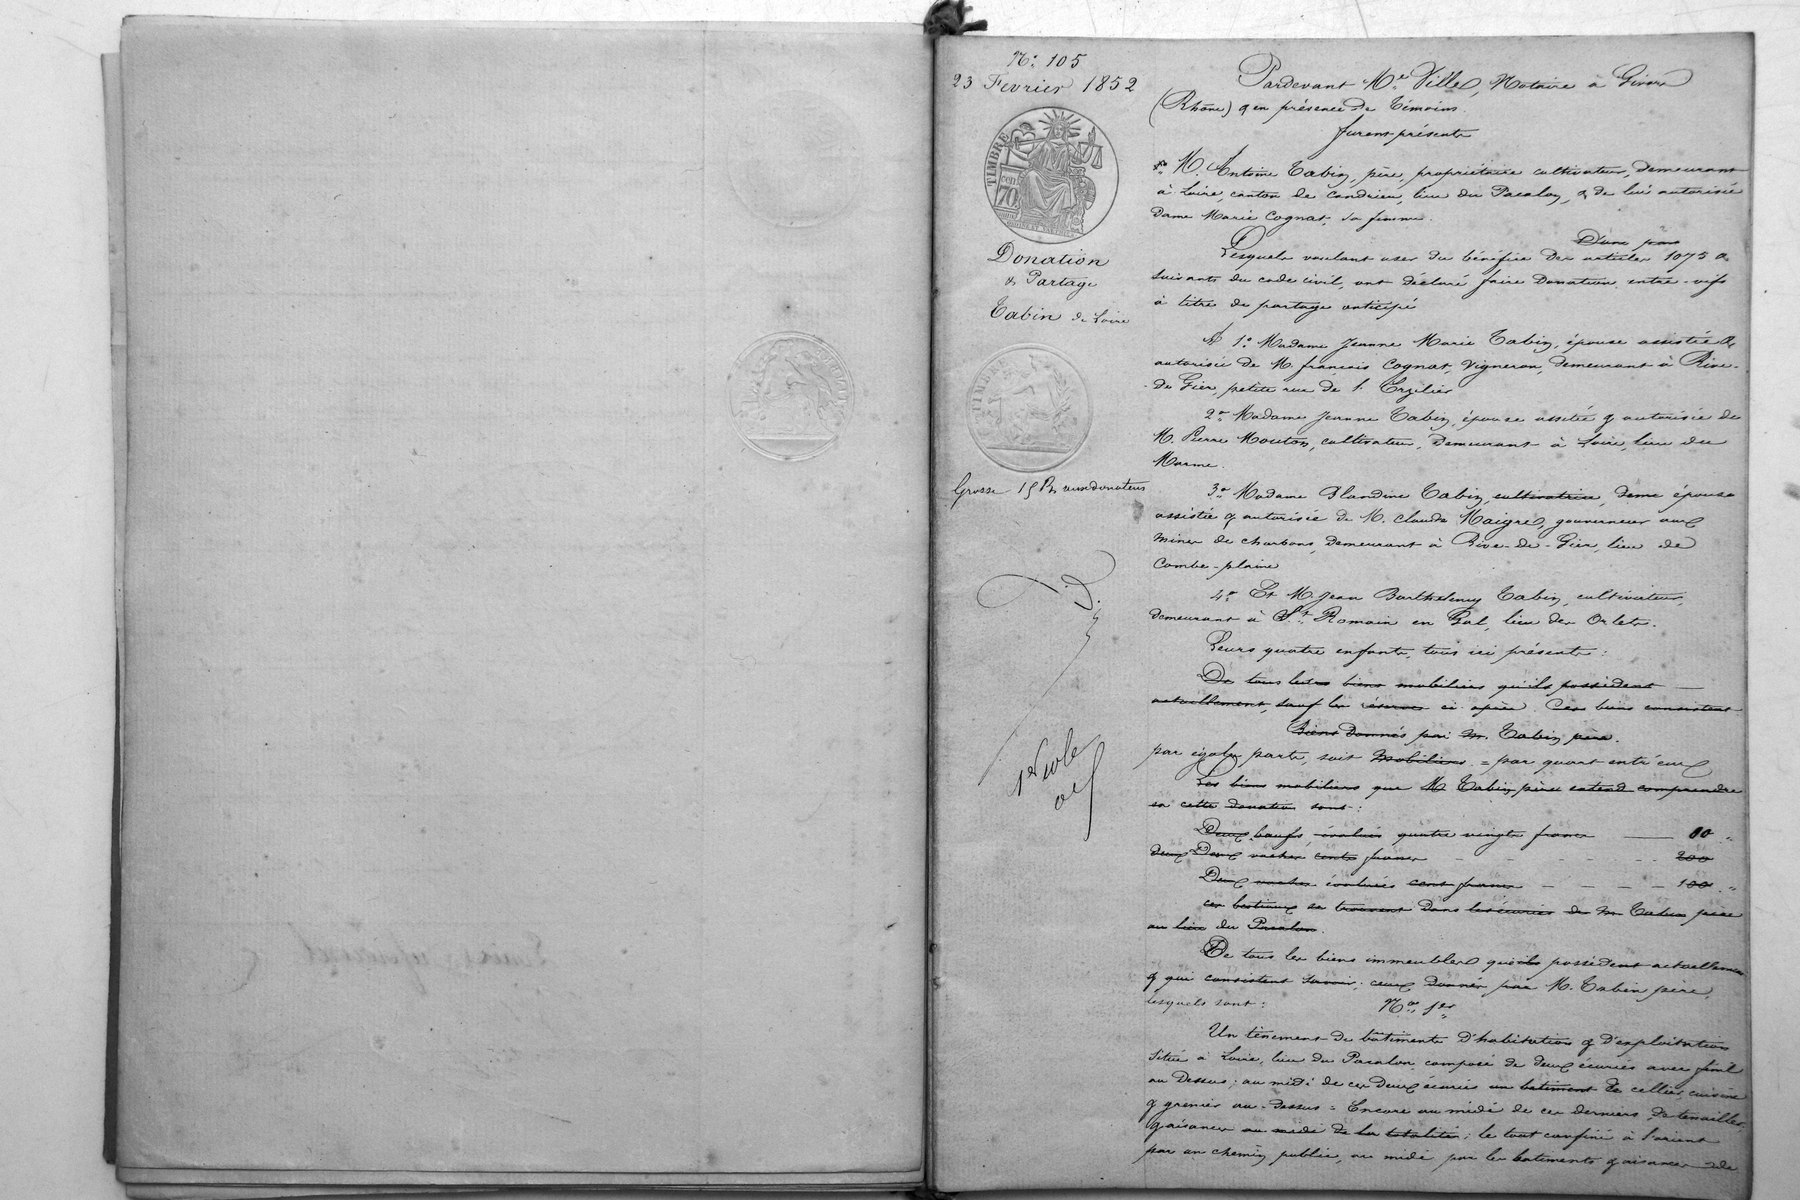 N.° 105
23 Fevrier 1852
TIMBRE
70
Donation
& Partage
Tabin de Loire
TIMBRE
Grosse 15 Rs aux donateurs
1er role
Pardevant Me Ville, Notaire à Givors
(Rhône) & en présence de témoins.
furent présents
M. Antoine Tabin, père, propriétaire cultivateur, demeurant
à Loire, canton de Condrieu, lieu du Pacalon, & de lui autorisée
Dame Marie Cognat, sa femme.
D'une part
Lesquels voulant user du bénéfice des articles 1075 &
suivants du code civil, ont déclaré faire Donation entre-vifs
à titre de partage anticipé
A 1.° Madame Jeanne Marie Tabin, épouse assistée &
autorisée de M. francois Cognat, Vigneron, demeurant à Rive-
de Gier, petite rue de
2° Madame Jeanne Tabin, épouse assitée & autorisée de
M. Pierre Mouton, cultivateur, demeurant à Loire, lieu du
Marme.
3° Madame Blandine Tabin, cultivatrice, dame épouse
assistée & autorisée de M. Claude Maigre, gouverneur aux
mines de charbons, demeurant à Rive-de-Gier, lieu de
Combe-plaine
4° Et M. Jean Barthelemy Tabin, cultivateur,
demeurant à St. Romain en Gal, lieu des Orlets.
Leurs quatre enfants, tous ici présents:
De tous les biens mobiliers qu'ils possèdent
actuellement, sauf les réserves ci après. Ces biens consistent
Biens Donnés par M. Tabin père.
par égales parts, soit mobiliers = par quart entr'eux
Les biens mobiliers que M Tabin père entend comprendre
en cette donation sont:
Deux bœufs, évalués quatre vingts francs 80
deux Deux vaches cents francs 200
Deux vaches évaluées cent francs 100
ces bestiaux se trouvent dans les écuries de M Tabin père
au lieu du Pacalon.
De tous les biens immeubles qu'ils possèdent actuellement
& qui consistent savoir; ceux donnés par M. Tabin père,
lesquels sont: N° 1er
Un tènement de bâtiments d'habitation & d'exploitation
Situé à Loire, lieu du Pacalon, composé de deux écuries avec fenil
au dessus; au midi de ces deux écuries un batiment de cellier, cuisine
& grenier au-dessus = Encore au midi de ces derniers,
& aisances au midi de la totalité; le tout confiné à l'orient
par un chemin public, au midi par les batiments & aisances de